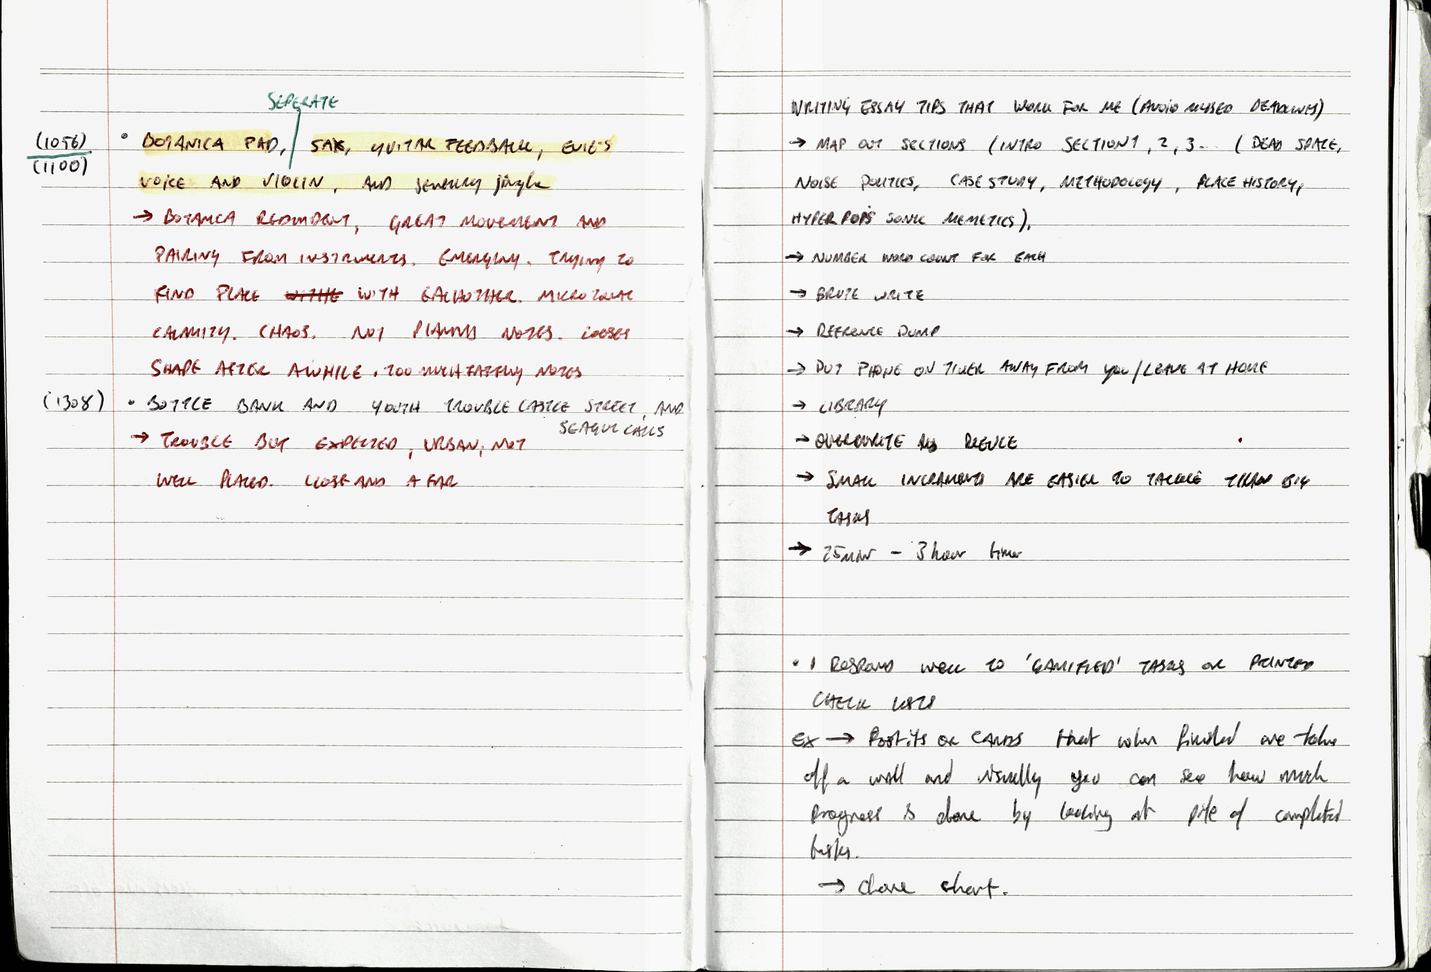 SEPERATE
(1056) • BOTANICA PAD, / SAX, GUITAR FEEDBACK, EVIE'S
(1100)
VOICE AND VIOLIN, AND jewelry jingle
→ BOTANICA REDUNDENT, GREAT MOVEMENT AND
PAIRING FROM INSTRUMENTS. EMERGING. TRYING TO
FIND PLACE WITH EACHOTHER. MICROTONAL
CALAMITY. CHAOS. NOT PLAYING NOTES. LOOSES
SHAPE AFTER AWHILE. TOO MUCH NOTES
(1308) • BOTTLE BANK AND YOUTH TROUBLE CASTLE STREET, AND
SEAGULL CALLS
→ TROUBLE BUT EXPECTED, URBAN, NOT
WELL PLACED. CLOSE AND A FAR
WRITING ESSAY TIPS THAT WORK FOR ME (AVOID MISSED DEADLINES)
→ MAP OUT SECTIONS (INTRO SECTION 1, 2, 3... (DEAD SPACE,
NOISE POLITICS, CASE STUDY, METHODOLOGY, PLACE HISTORY,
HYPERPOPS SONIC MEMETICS).
→ NUMBER WORD COUNT FOR EACH
→ BRUTE WRITE
→ REFERENCE DUMP
→ PUT PHONE ON TIMER AWAY FROM you/LEAVE AT HOME
→ LIBRARY
→ OVERWRITE REDUCE
→ SMALL INCRAMENTS ARE EASIER TO TACKLE THAN BIG
TASKS
→ 25MIN - 3 hour timer
• I RESPOND WELL TO 'GAMIFIED' TASKS OR PRINTED
CHECK LISTS
EX → Post its OR CARDS that when finished are taken
off a wall and visually you can see how much
progress is done by looking at pile of completed
tasks.
→ chore chart.